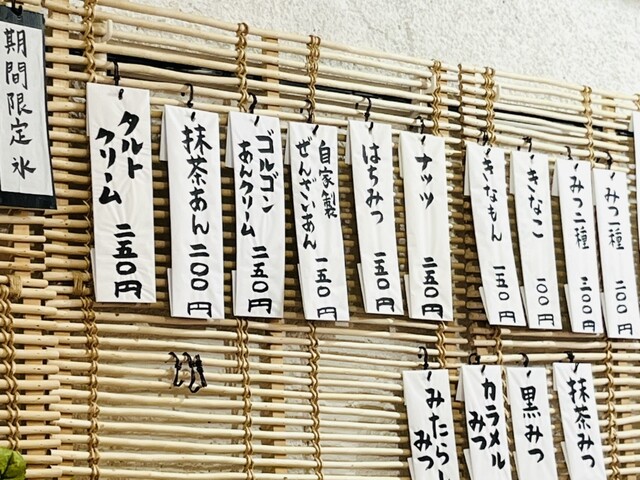 みつ一種 二〇〇円
みつ二種 三〇〇円
きなこ 一〇〇円
きなもん 一五〇円
ナッツ 二五〇円
はちみつ 一五〇円
自家製
ぜんざいあん 一五〇円
ゴルゴン
あんクリーム 二五〇円
抹茶あん 二〇〇円
タルト
クリーム 二五〇円
期間限定 氷
抹茶みつ
黒みつ
カラメル
みつ
みたらし
みつ